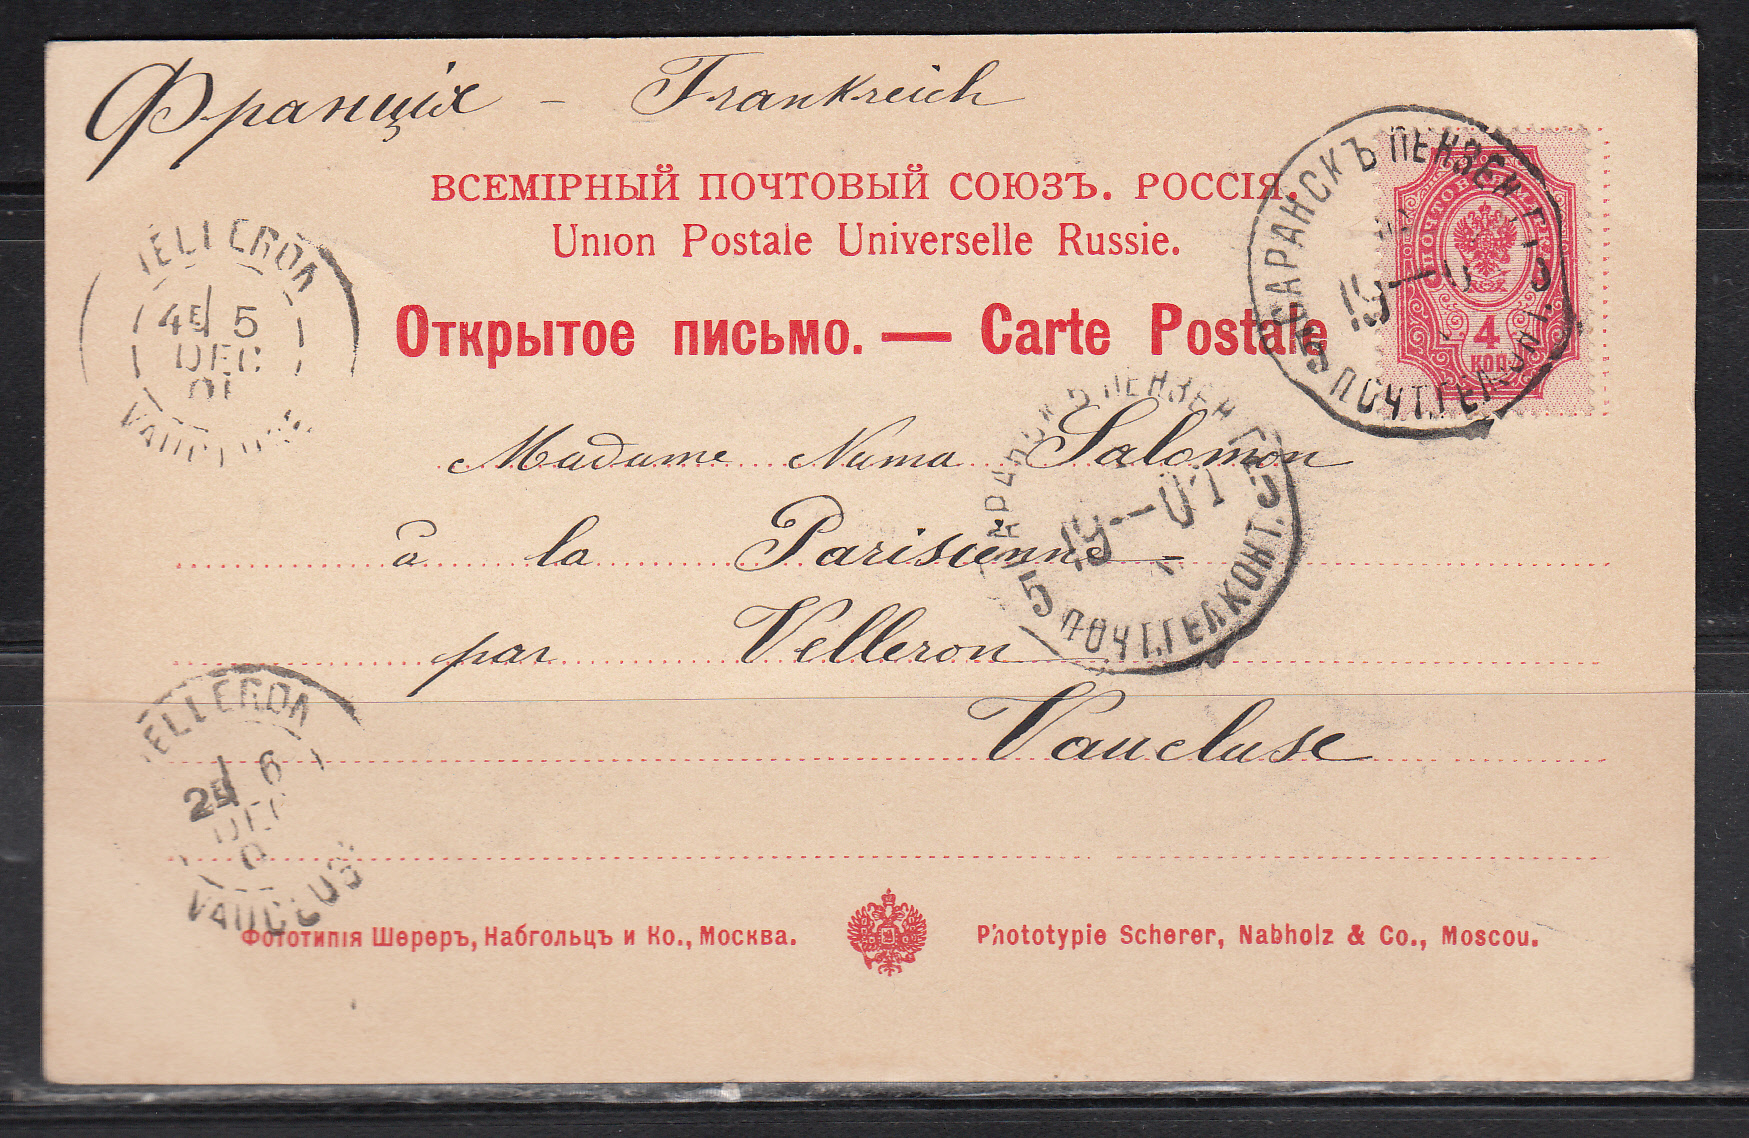 Франція - Frankreich
ВСЕМІРНЫЙ ПОЧТОВЫЙ СОЮЗЪ. РОССІЯ.
Union Postale Universelle Russie.
Открытое письмо. — Carte Postale
САРАНСКЪ ПЕНЗЕН. Г.
19
5 ПОЧТ.ТЕЛ.КОНТ. 5
4
КОП.
4E 5
DEC
01
VAUCLUSE
Madame Numa Salomon
à la Parisienne
par Velleron
Vaucluse
ПЕНЗЕН. Г.
19—01
5 ПОЧТ.ТЕЛ.КОНТ. 5
2E 6
DEC
VAUCLUSE
Фототипія Шереръ, Набгольцъ и Ко., Москва.
Phototypie Scherer, Nabholz & Co., Moscou.